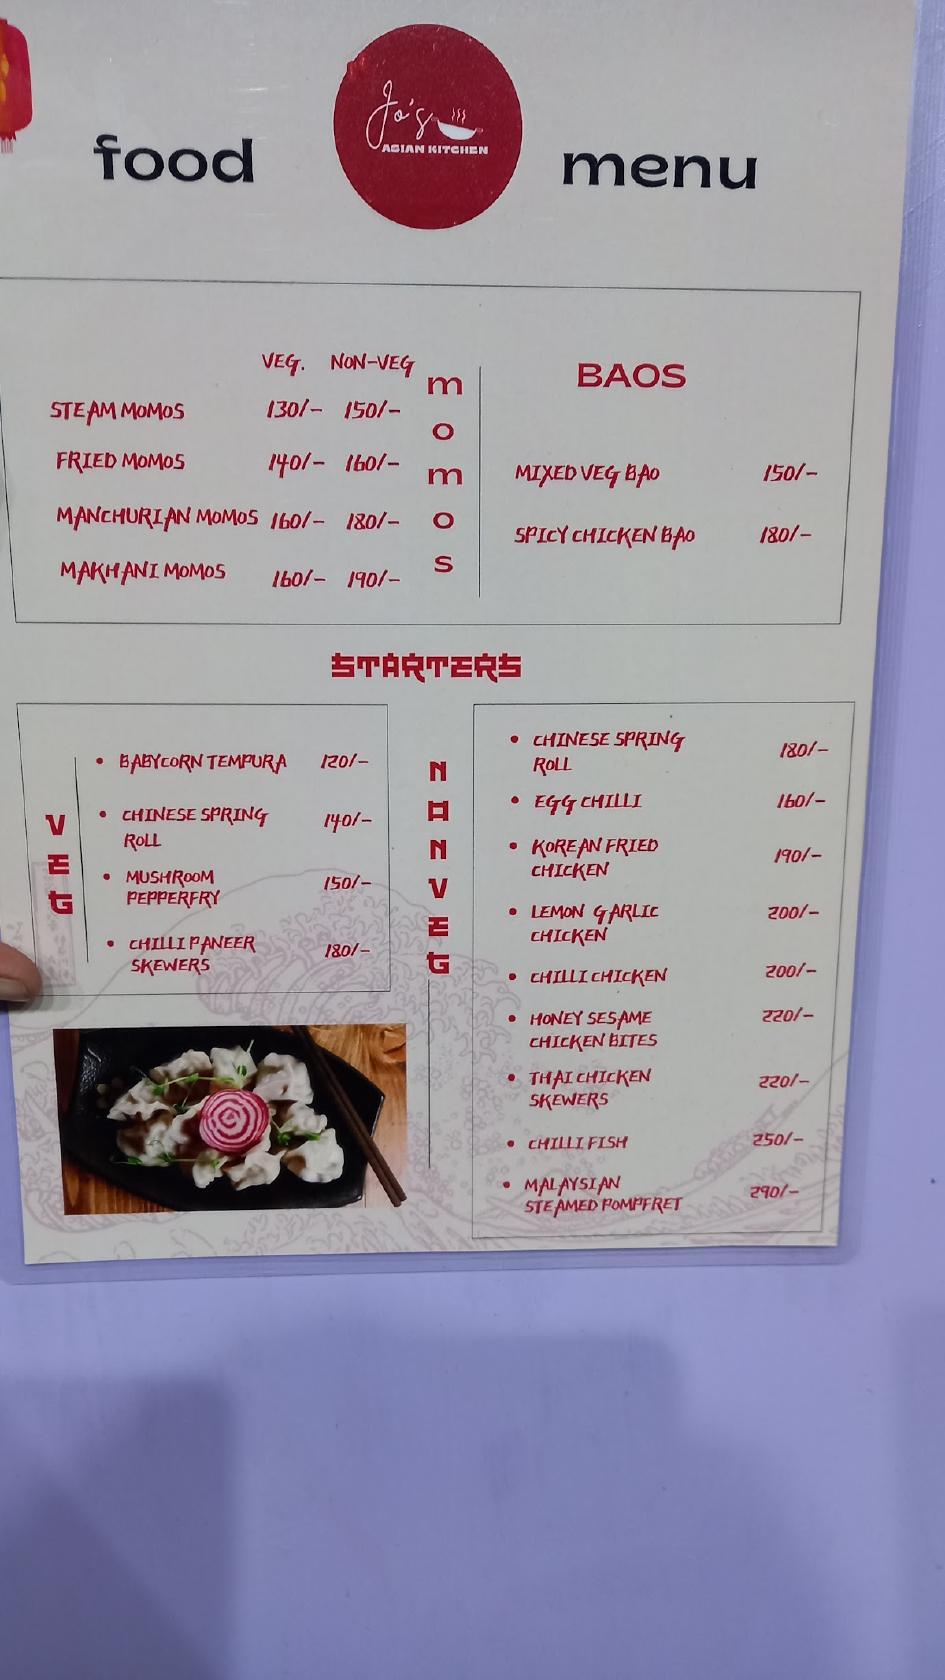 Jo's
ASIAN KITCHEN
food menu
VEG. NON-VEG
momos
STEAM MOMOS 130/- 150/-
FRIED MOMOS 140/- 160/-
MANCHURIAN MOMOS 160/- 180/-
MAKHANI MOMOS 160/- 190/-
BAOS
MIXED VEG BAO 150/-
SPICY CHICKEN BAO 180/-
STARTERS
VEG
• BABYCORN TEMPURA 120/-
• CHINESE SPRING 140/-
ROLL
• MUSHROOM 150/-
PEPPERFRY
• CHILLI PANEER 180/-
SKEWERS
NANVEG
• CHINESE SPRING 180/-
ROLL
• EGG CHILLI 160/-
• KOREAN FRIED 190/-
CHICKEN
• LEMON GARLIC 200/-
CHICKEN
• CHILLI CHICKEN 200/-
• HONEY SESAME 220/-
CHICKEN BITES
• THAI CHICKEN 220/-
SKEWERS
• CHILLI FISH 250/-
• MALAYSIAN 290/-
STEAMED POMPFRET